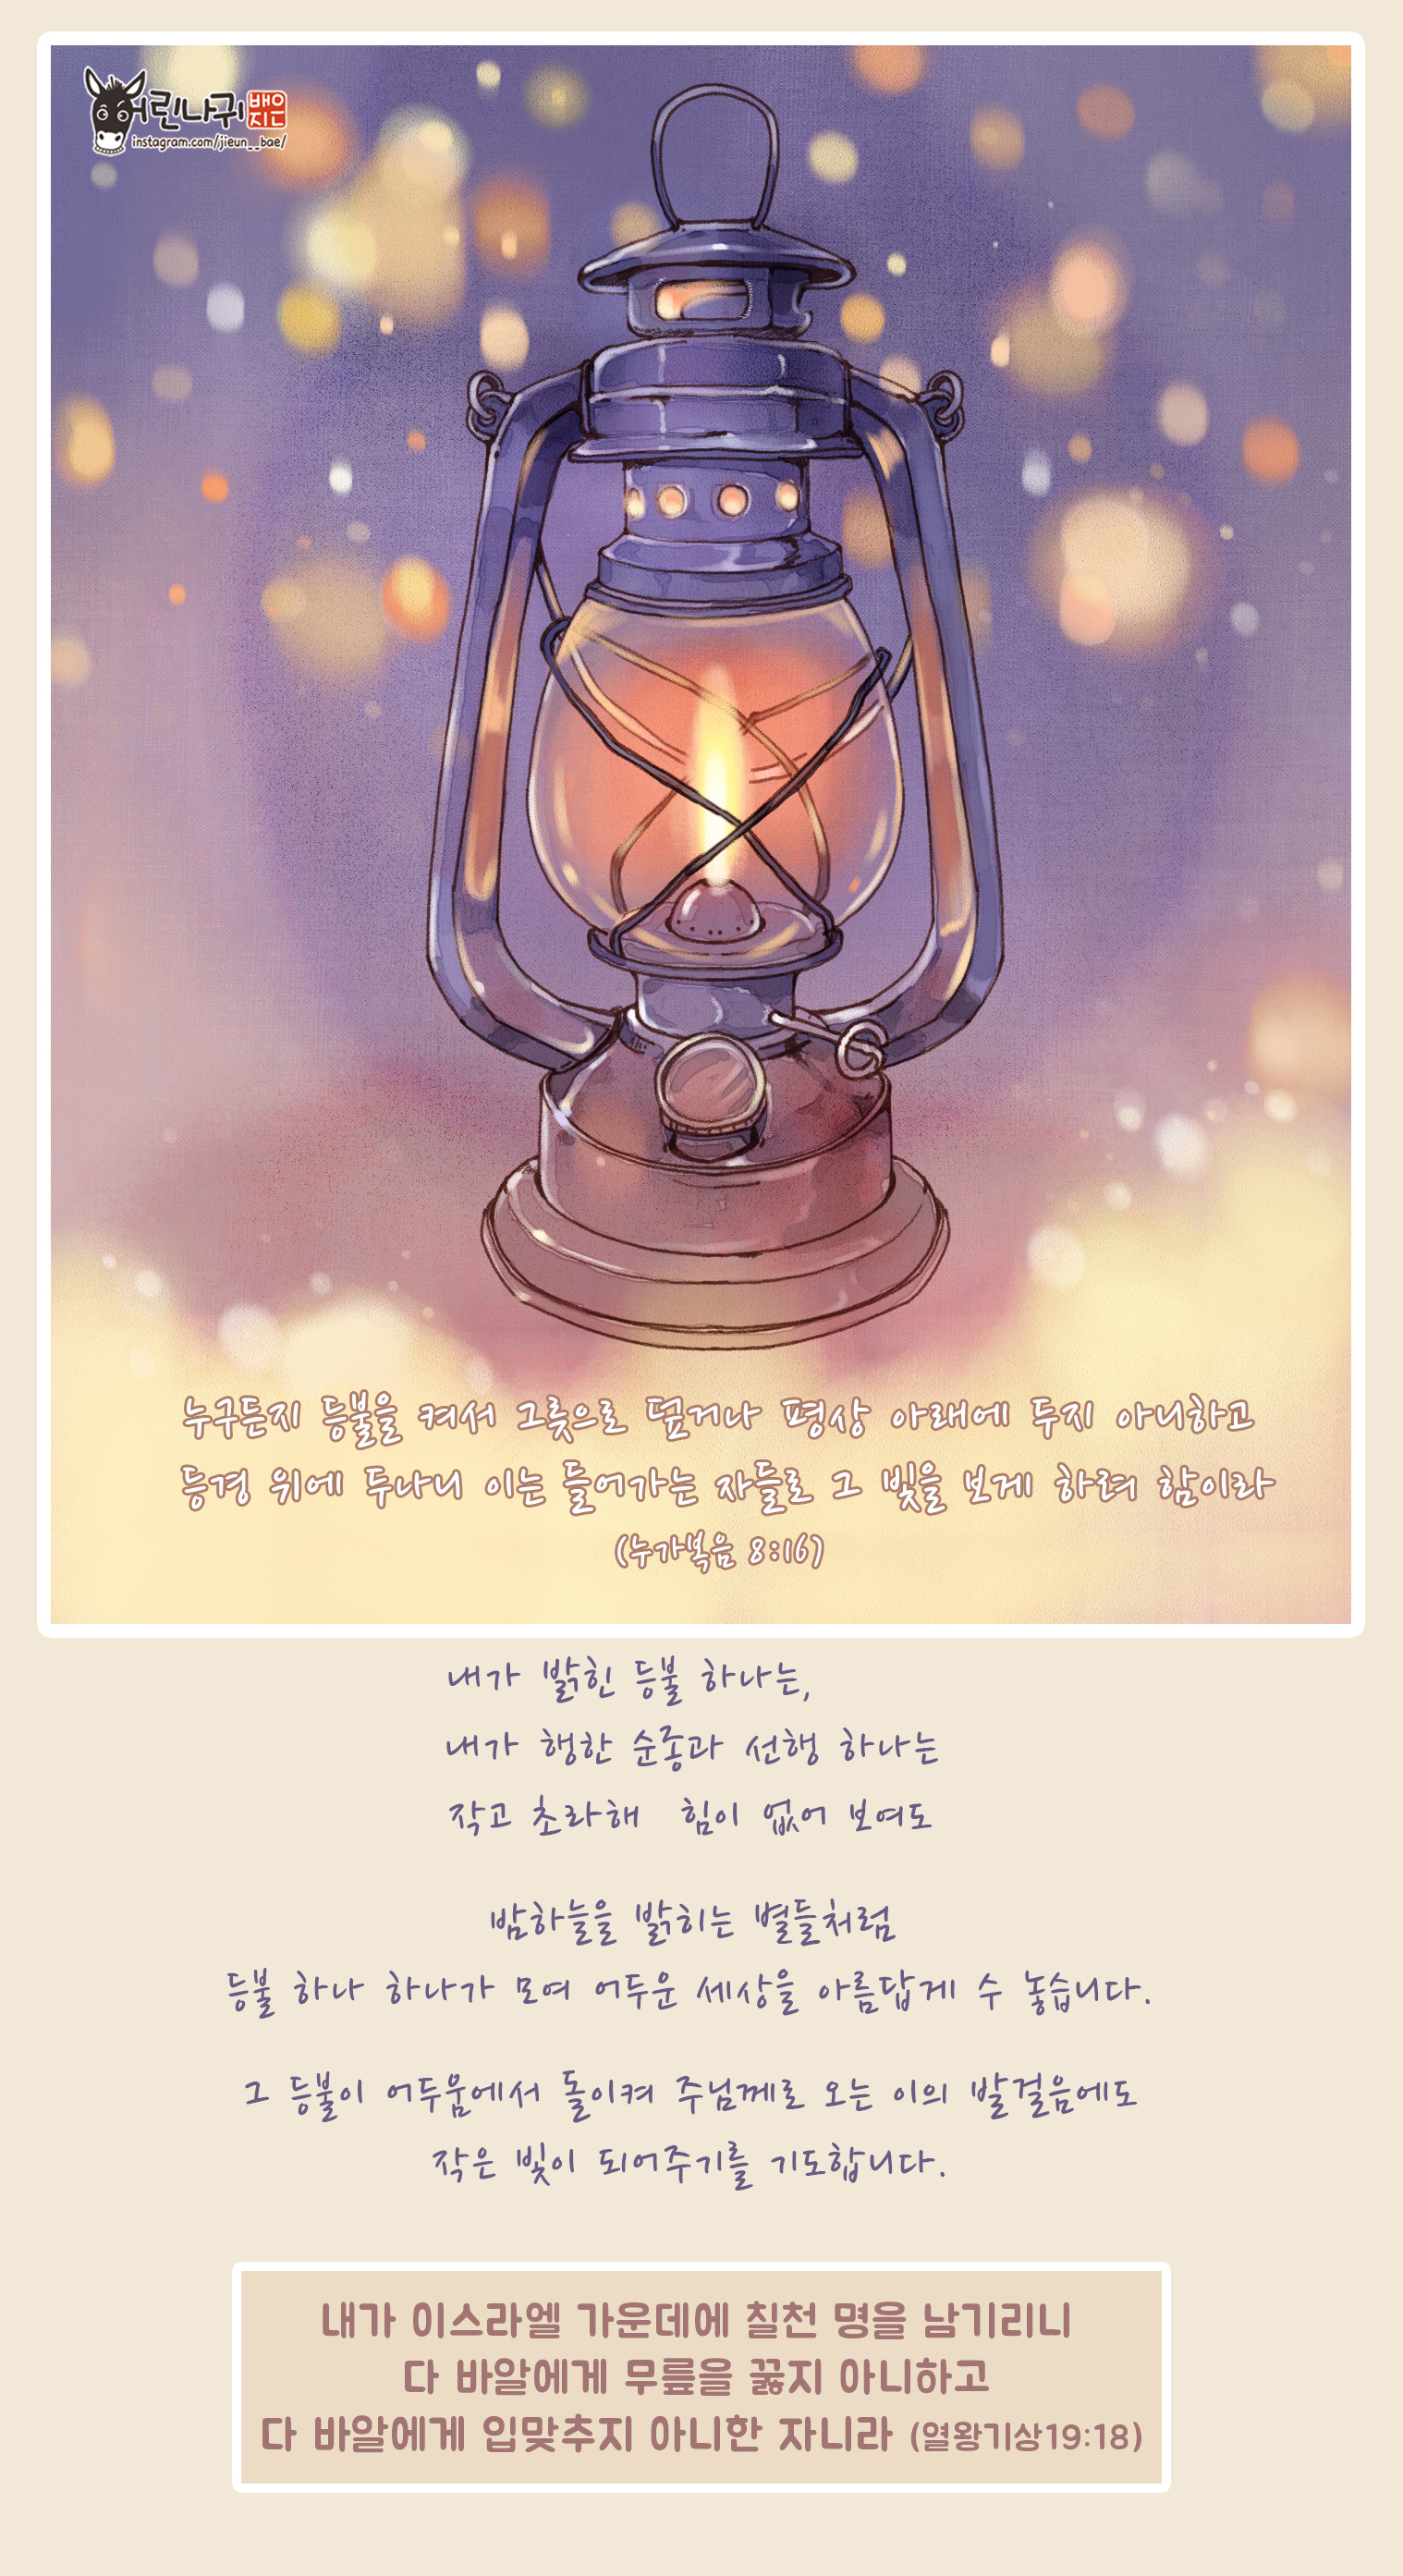 어린나귀 배지은
instagram.com/jieun__bae/
누구든지 등불을 켜서 그릇으로 덮거나 평상 아래에 두지 아니하고
등경 위에 두나니 이는 들어가는 자들로 그 빛을 보게 하려 함이라
(누가복음 8:16)
내가 밝힌 등불 하나는,
내가 행한 순종과 선행 하나는
작고 초라해 힘이 없어 보여도
밤하늘을 밝히는 별들처럼
등불 하나 하나가 모여 어두운 세상을 아름답게 수 놓습니다.
그 등불이 어두움에서 돌이켜 주님께로 오는 이의 발걸음에도
작은 빛이 되어주기를 기도합니다.
내가 이스라엘 가운데에 칠천 명을 남기리니
다 바알에게 무릎을 꿇지 아니하고
다 바알에게 입맞추지 아니한 자니라 (열왕기상19:18)